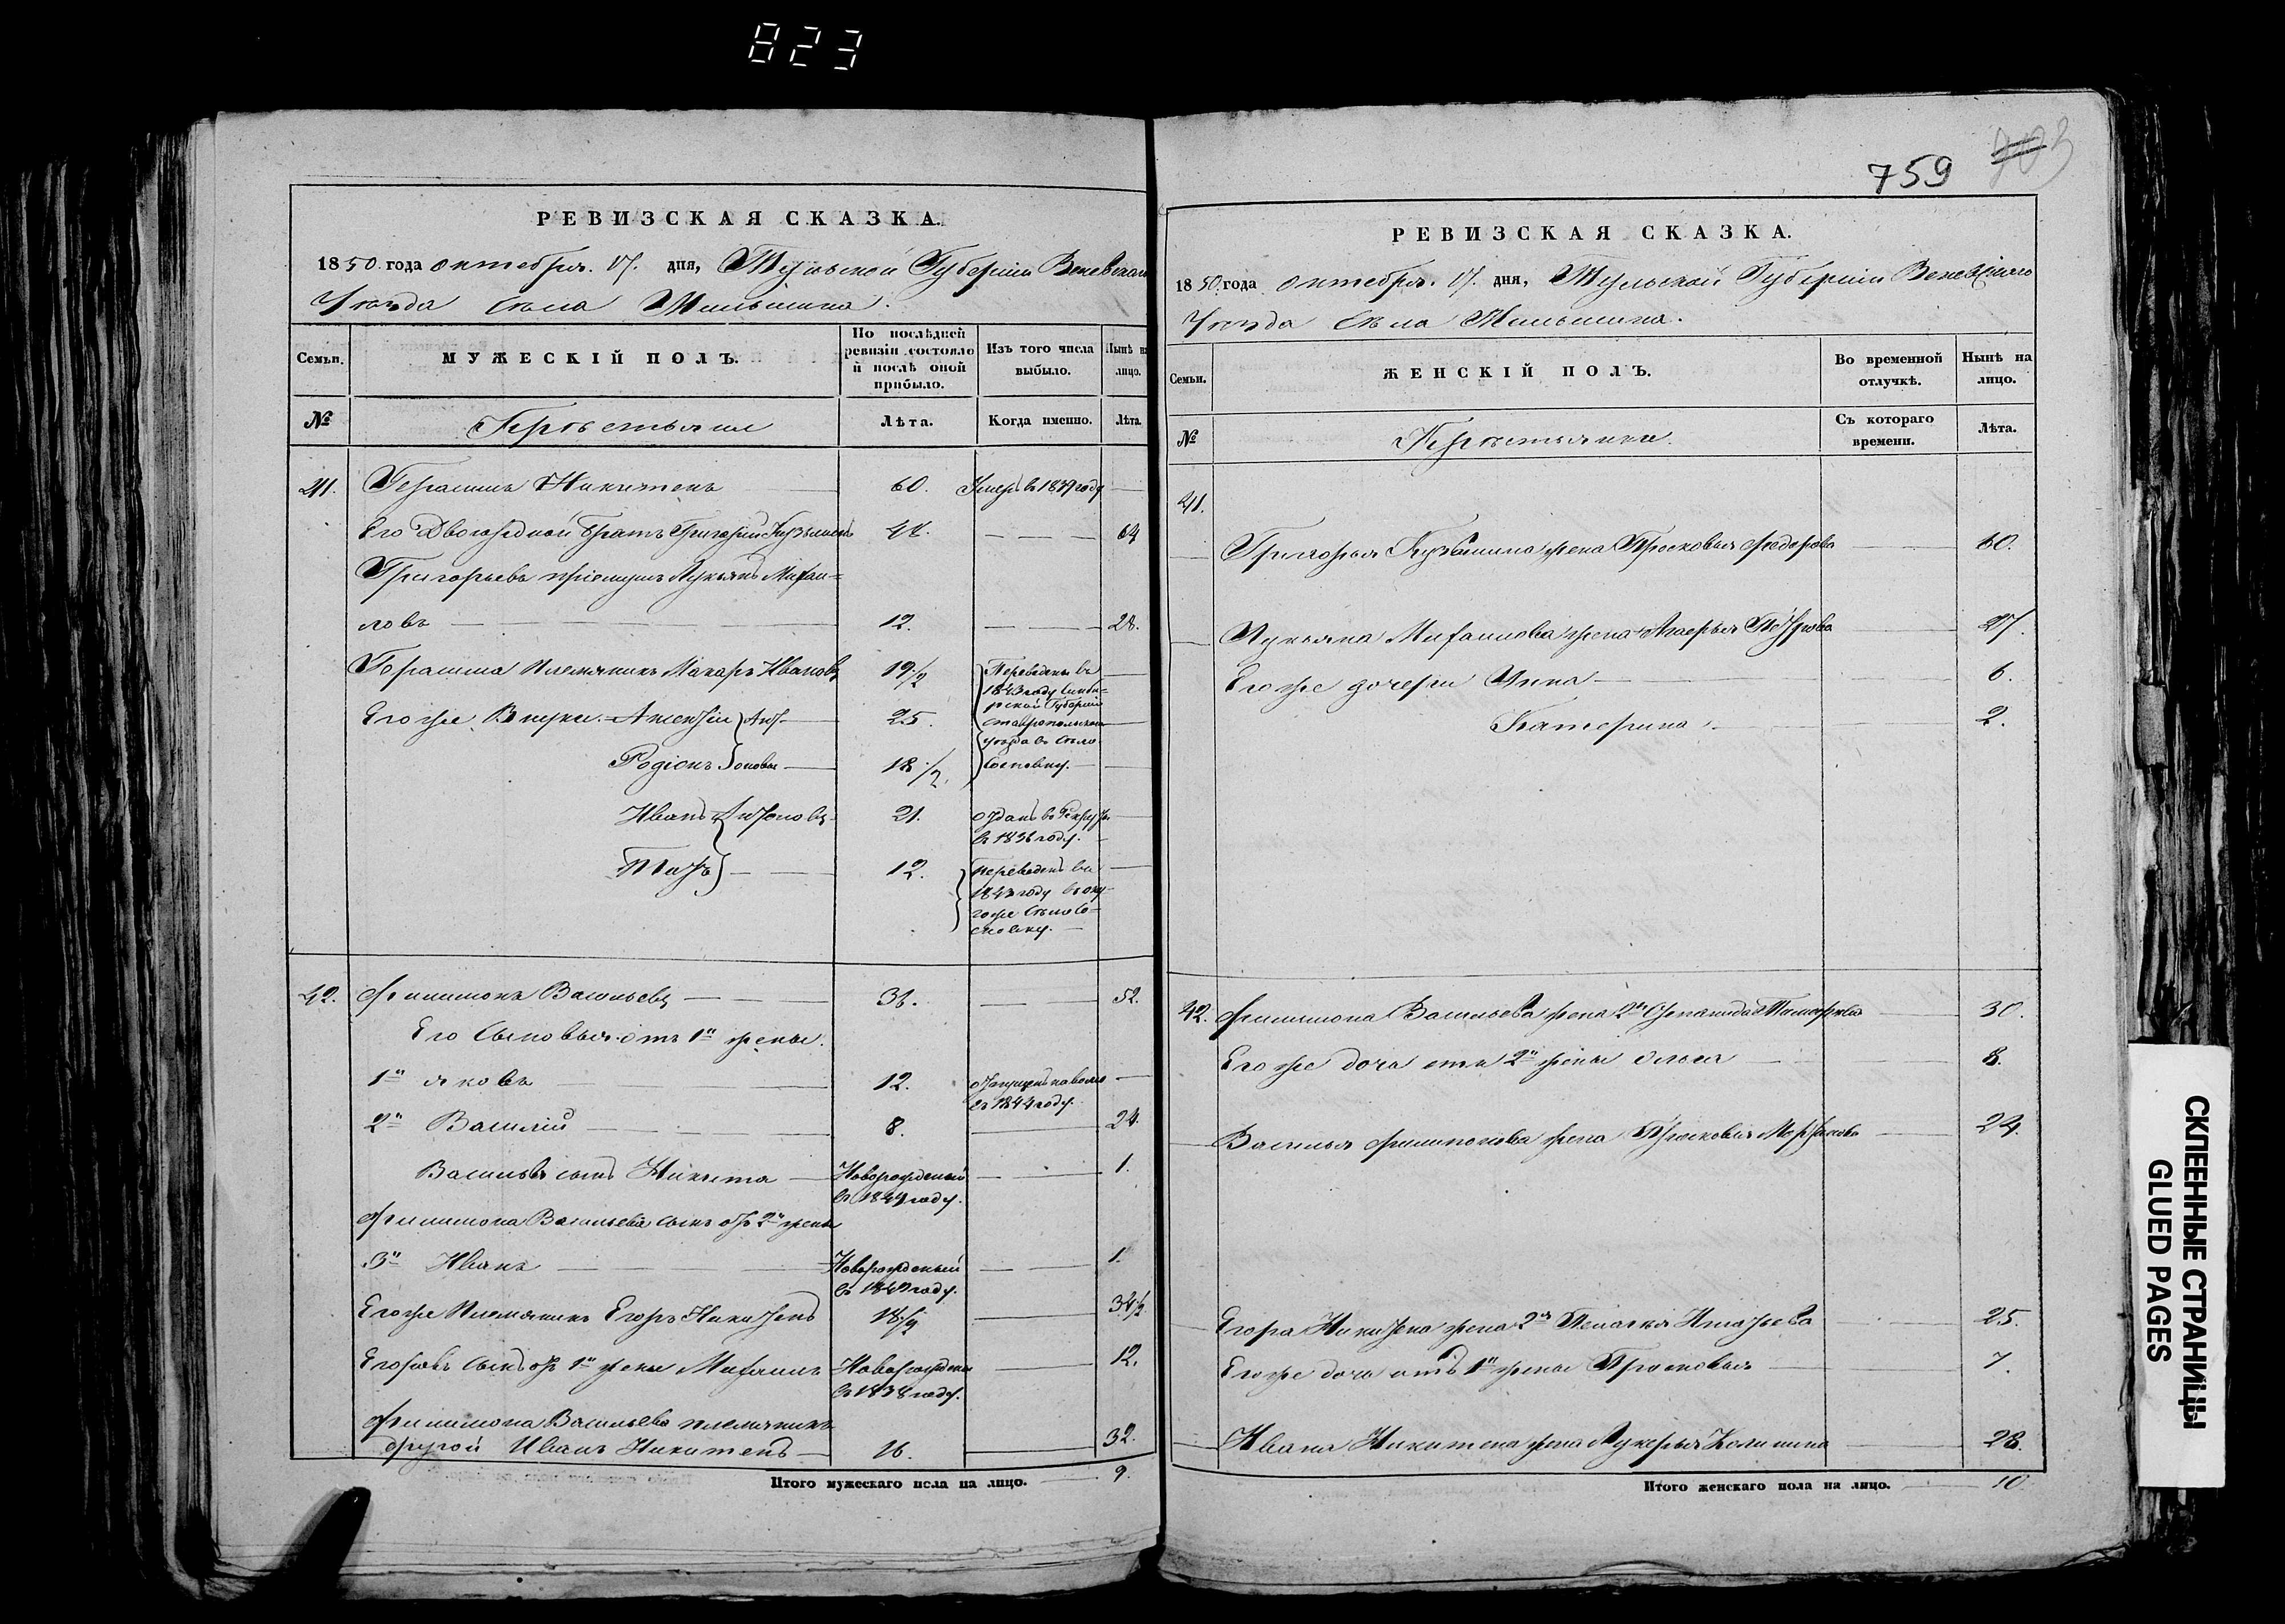 823
759
703
РЕВИЗСКАЯ СКАЗКА.
1850 года октября 17. дня, Тульской Губернiи Веневскаго
Уѣзда Села Мильшина.
Семьи. МУЖЕСКIЙ ПОЛЪ. По послѣдней ревизiи состояло и послѣ оной прибыло. Изъ того числа выбыло. Нынѣ на лицо.
№ Крестьяне Лѣта. Когда именно. Лѣта.
41. Герасимъ Никитенъ 60. Умеръ въ 1839 году
Его Двоюродной братъ Григорiй Кузьминъ 48. 64
Григорьевъ прiемышъ Лукьянъ Михаи=
ловъ 12. 28.
Герасима племянникъ Макаръ Ивановъ 19 1/2 Переведены въ
1843 году Симби=
рской Губернiи
Его же Внуки Алексѣй Ант- 25. Ставропольскаго
уѣзда въ Село
Родiонъ оновы 18 1/2 Сосновку.
Иванъ Антоновъ 21. отданъ въ Рекруты
въ 1836 году.
Титъ 12. переведенъ въ
1843 году въ ону
гоже Село Со=
сновку.
42. Филимонъ Васильевъ 36. 52.
Его Сыновья отъ 1й жены.
1й Яковъ 12. отпущенъ на волю
въ 1844 году.
2й Василiй 8. 24.
Васильевъ сынъ Никита Новорожденый 1.
въ 1849 году.
Филимона Васильева сынъ отъ 2й жены
3й Иванъ Новорожденый 1.
въ 1849 году.
Его же Племянникъ Егоръ Никитенъ 18 1/2 34 1/2
Егоровъ сынъ отъ 1й жены Михаилъ Новорожденый 12.
въ 1838 году.
Филимона Васильева племянникъ
другой Иванъ Никитенъ 16. 32.
Итого мужескаго пола на лицо. 9.
РЕВИЗСКАЯ СКАЗКА.
1850 года октября. 17. дня, Тульской Губернiи Веневскаго
Уѣзда Села Мильшина.
Семьи. ЖЕНСКIЙ ПОЛЪ. Во временной отлучкѣ. Нынѣ на лицо.
№ Крестьянки. Съ котораго времени. Лѣта.
41.
Григорья Кузьмина жена Просковья Федорова 60.
Лукьяна Михаилова жена Петрова 27.
Его же дочери Анна 6.
Катерина 2.
42. Филимона Васильева жена 2я Степанида 30.
Его же дочь отъ 2й жены Ольга 8.
Василья Филимонова жена Просковья 24.
Егора Никитена жена 2я Пелагея Игнатьева 25.
Его же дочь отъ 1й жены Просковья 7.
Ивана Никитена жена Лукерья 28.
Итого женскаго пола на лицо. 10
СКЛЕЕННЫЕ СТРАНИЦЫ
GLUED PAGES